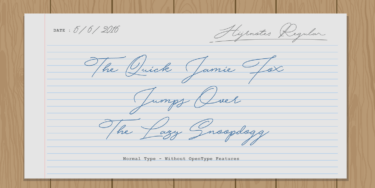 DATE : 5/5/2016
Hipnotes Regular
The Quick Jamie Fox
Jumps Over
The Lazy Snoopdogg
Normal Type - Without OpenType Features